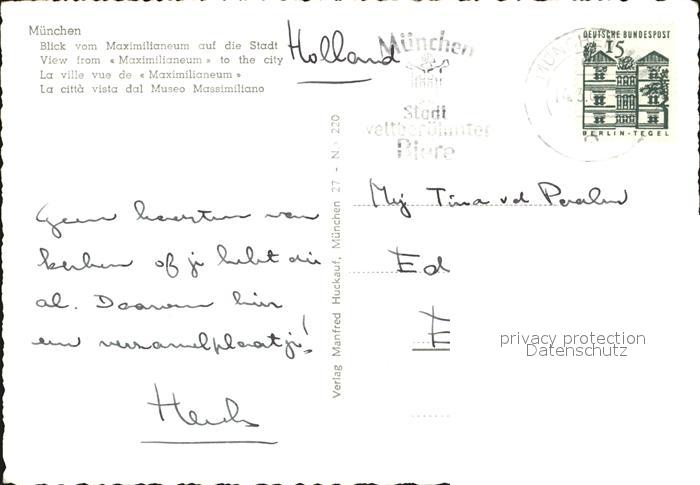 München
Blick vom Maximilianeum auf die Stadt
View from « Maximilianeum » to the city
La ville vue de « Maximilianeum »
La città vista dal Museo Massimiliano
Holland
München
Stadt
weltberühmter
Biere
DEUTSCHE BUNDESPOST
15
BERLIN-TEGEL
Verlag Manfred Huckauf, München 27 - Nr. 220
Mej Tina vd
Ed
E
Geen kaarten van
kerken of je hebt die
al. Daarom hier
een verzamelplaatje!
Henk
privacy protection
Datenschutz